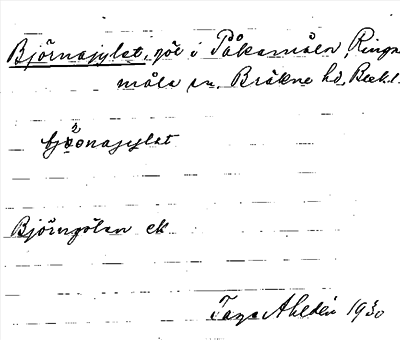 Björnagylet, göl i Påkamåln, Ringa-
måla sn. Bräkne hd, Blek.l.
bjɷ̈nagylet
Björngölen ek
Tage Ahldén 1930